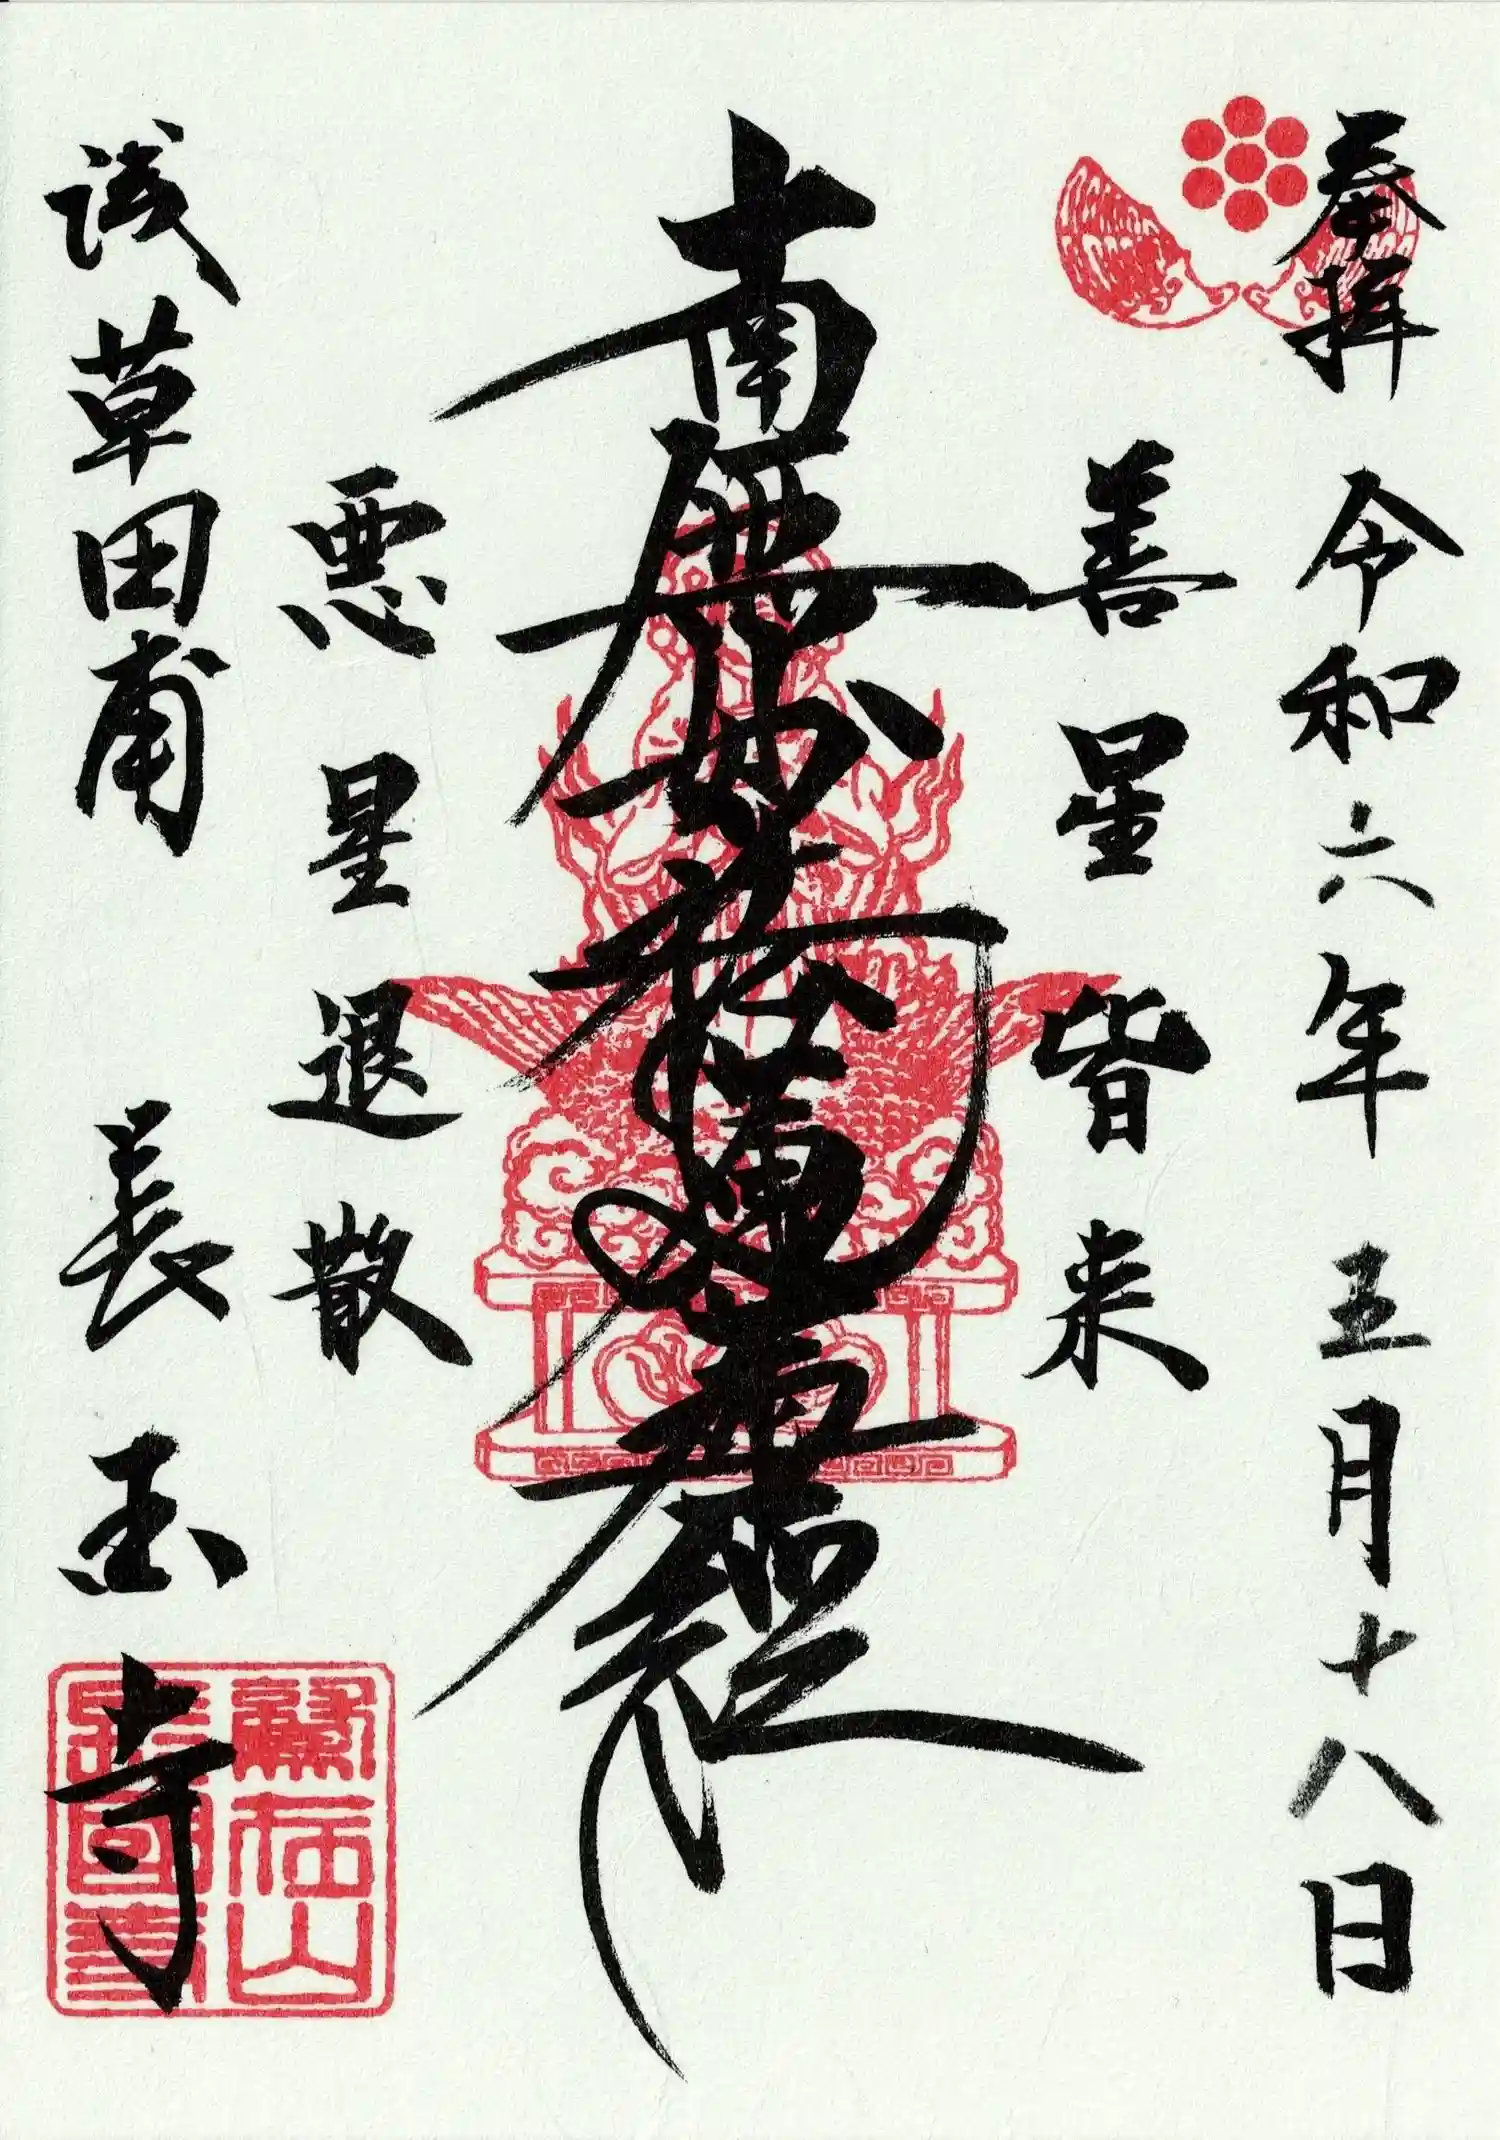 奉拝
令和六年五月十八日
善星皆来
南無妙法蓮華経
悪星退散
浅草田甫
長国寺
鷲在山
長國寺